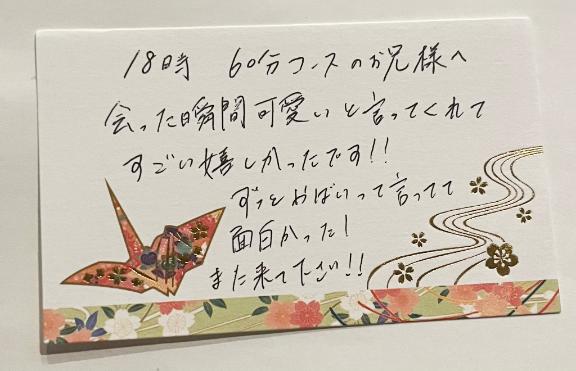 18時 60分コースのお兄様へ
会った瞬間可愛いと言ってくれて
すごい嬉しかったです!!
ずっとおばいって言ってて
面白かった!
また来て下さい!!